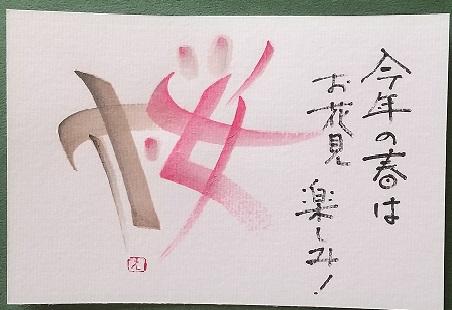 今年の春は
お花見
楽しみ!
桜
え